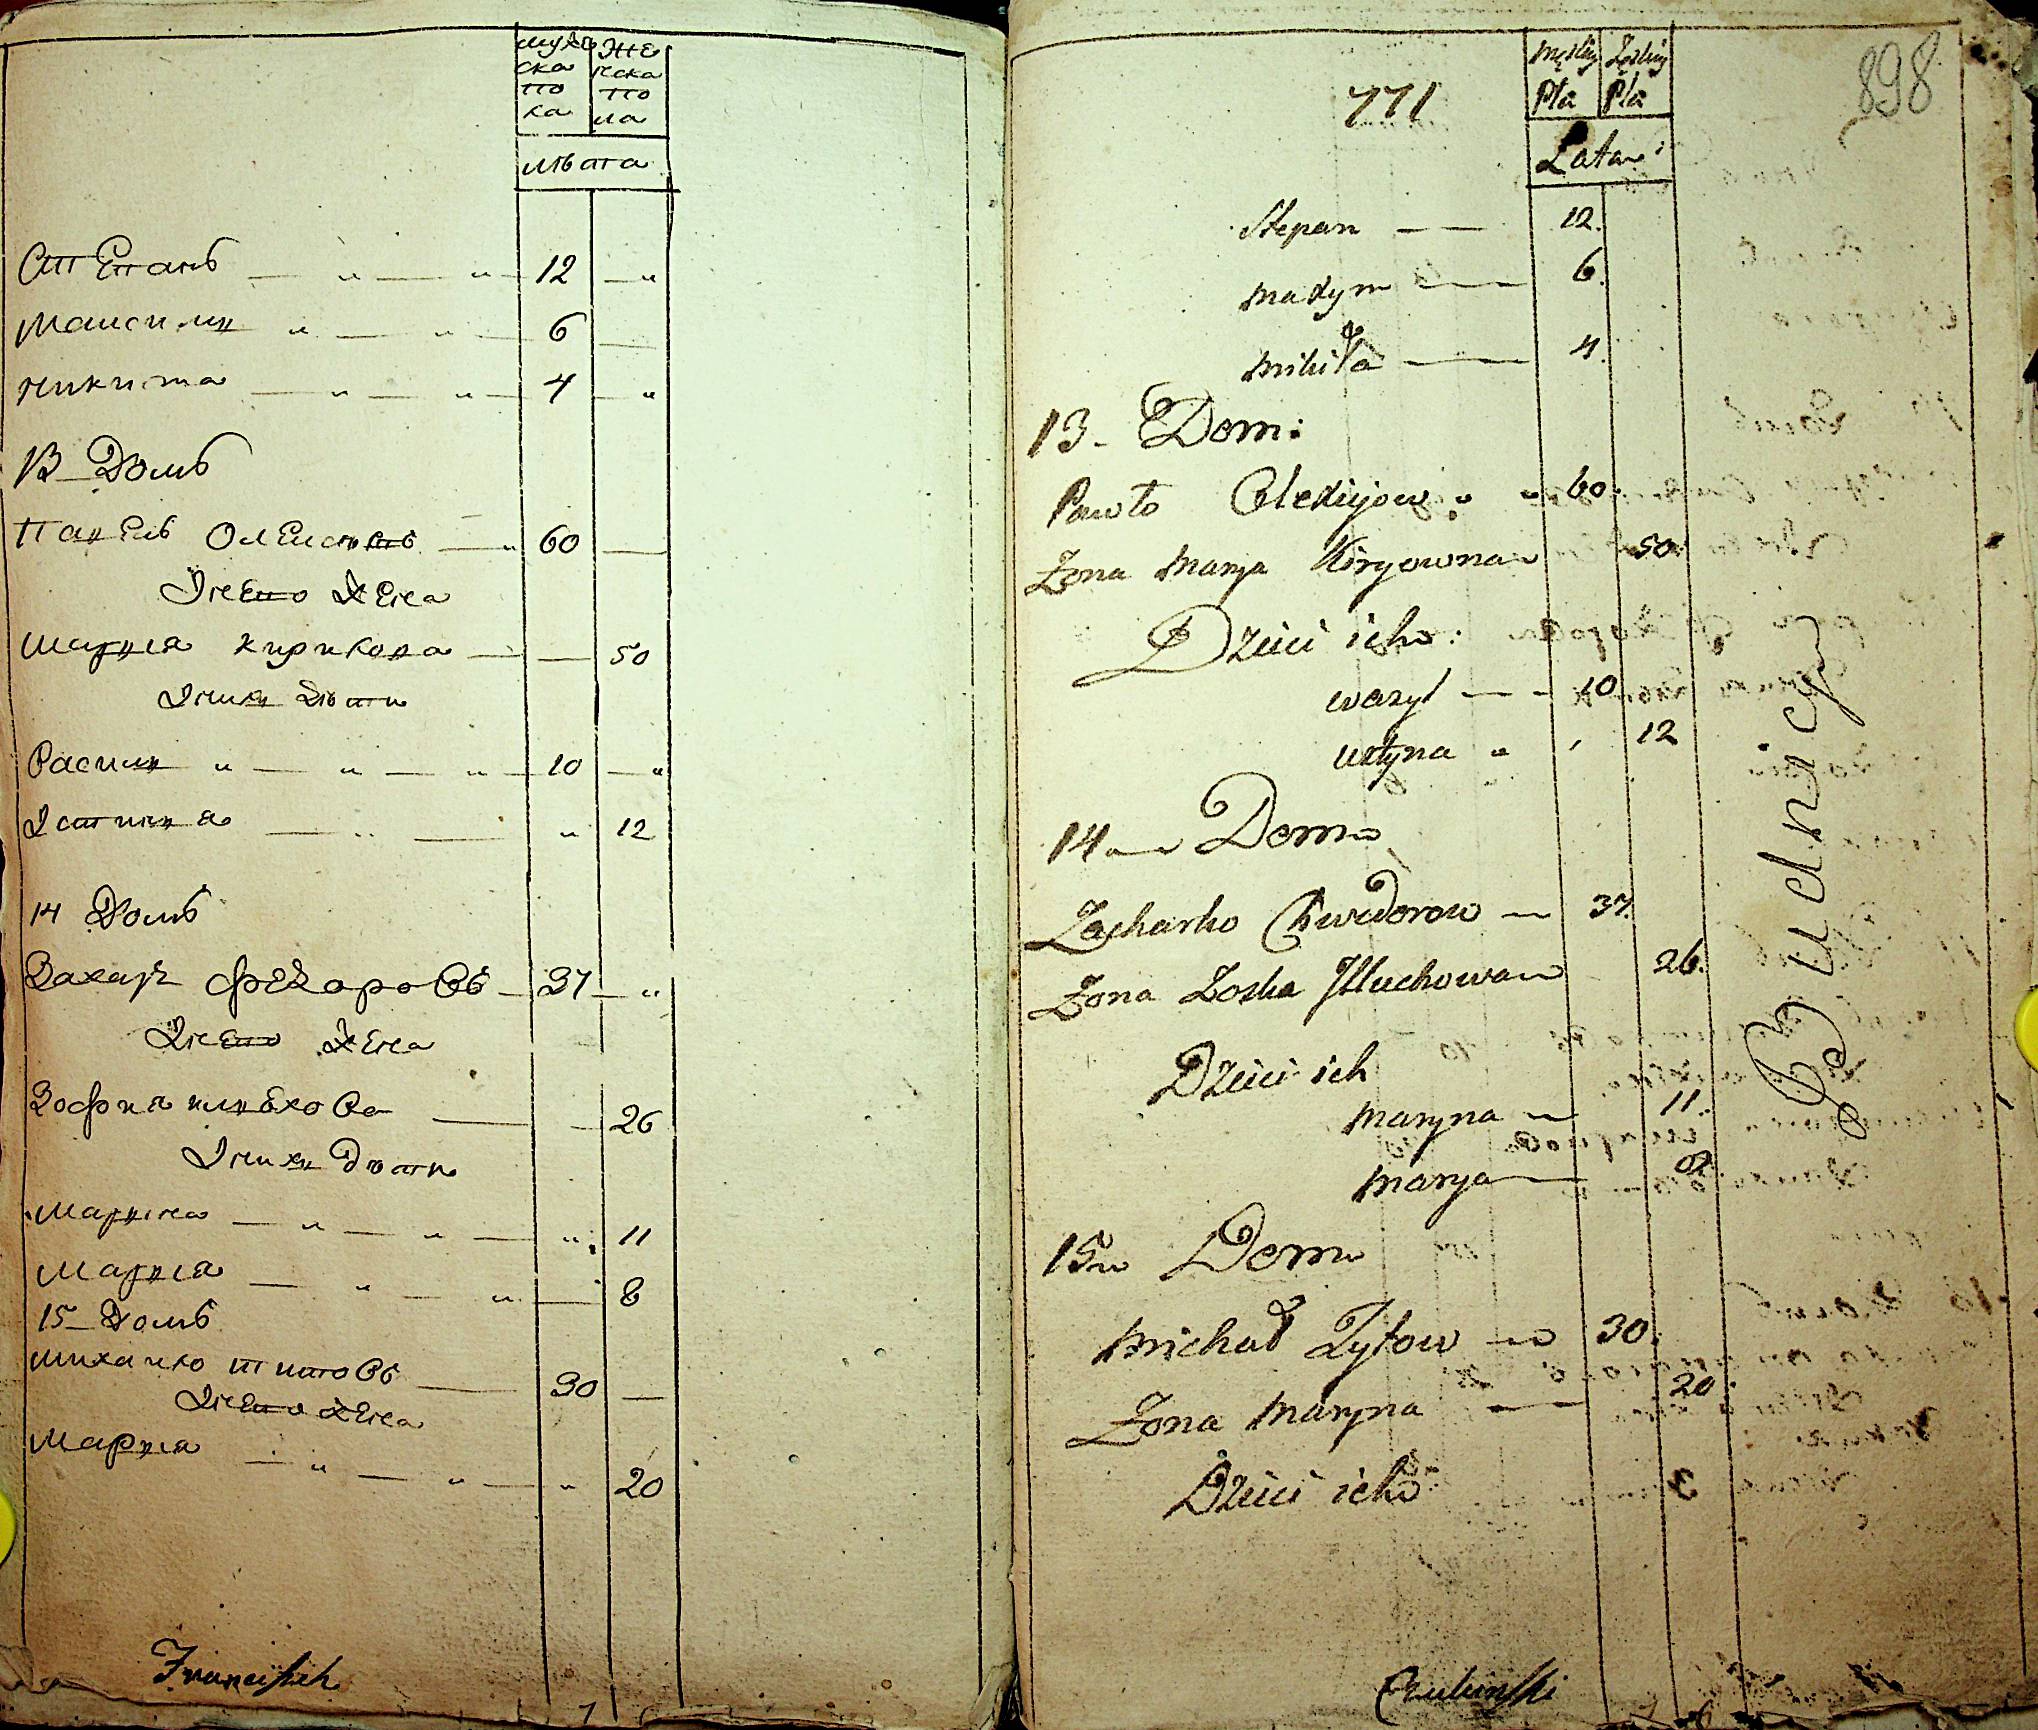 мужеска пола
женска пола
лѣта
Степанъ 12
Максимъ 6
Никита 4
13 Домъ
Павелъ Олексіевъ 60
Его жена
Марія Кирикова 50
Ихъ дѣти
Василь 10
Устинія 12
14 Домъ
Захаръ Федоровъ 37
Его жена
Зофия 26
Ихъ дѣти
Марина 11
Марія 8
15 Домъ
Михайло Титовъ 30
Его жена
Марія 20
Francishek
771
898
Męskiey Płci
Żeńskiey Płci
Lata
Stepan 12.
Maxym 6.
Mikita 4.
13. Dom:
Pawło Olexiijow 60.
Żona Marya Kiryowna 50
Dzieci ich:
Wazyl 10
Ustyna 12
14 Dom
Zacharko Chwedorow 37.
Żona Zoska 26.
Dzieci ich
Maryna 11.
Marya 8
15 Dom
Michał Tytow 30.
Żona Maryna 20.
Dzieci ich
3
Budnicy